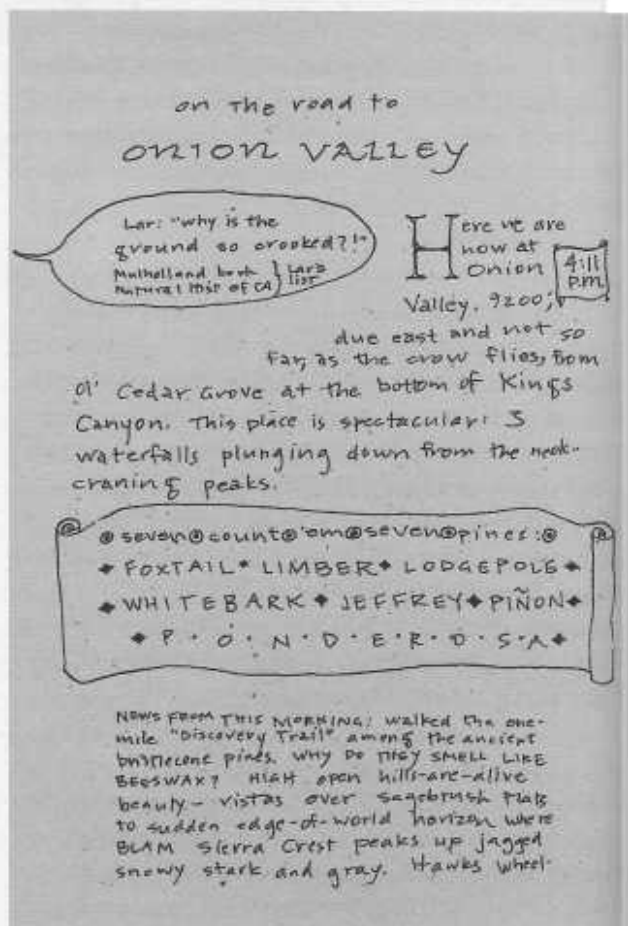 on the road to
ONION VALLEY
Lar: "why is the
ground so crooked?!"
Mulholland book } Lar's
Natural Hist of CA } list
Here we are
now at
Onion
4:11
p.m.
Valley. 9200',
due east and not so
far, as the crow flies, from
ol' Cedar Grove at the bottom of Kings
Canyon. This place is spectacular: 3
waterfalls plunging down from the neck-
craning peaks.
seven count 'em seven pines:
FOXTAIL LIMBER LODGEPOLE
WHITEBARK JEFFREY PIÑON
P·O·N·D·E·R·O·S·A
NEWS FROM THIS MORNING: walked the one-
mile "Discovery Trail" among the ancient
bristlecone pines. WHY DO THEY SMELL LIKE
BEESWAX? HIGH open hills-are-alive
beauty - vistas over sagebrush flats
to sudden edge-of-world horizon where
BLAM Sierra Crest peaks up jagged
snowy stark and gray. Hawks wheel-